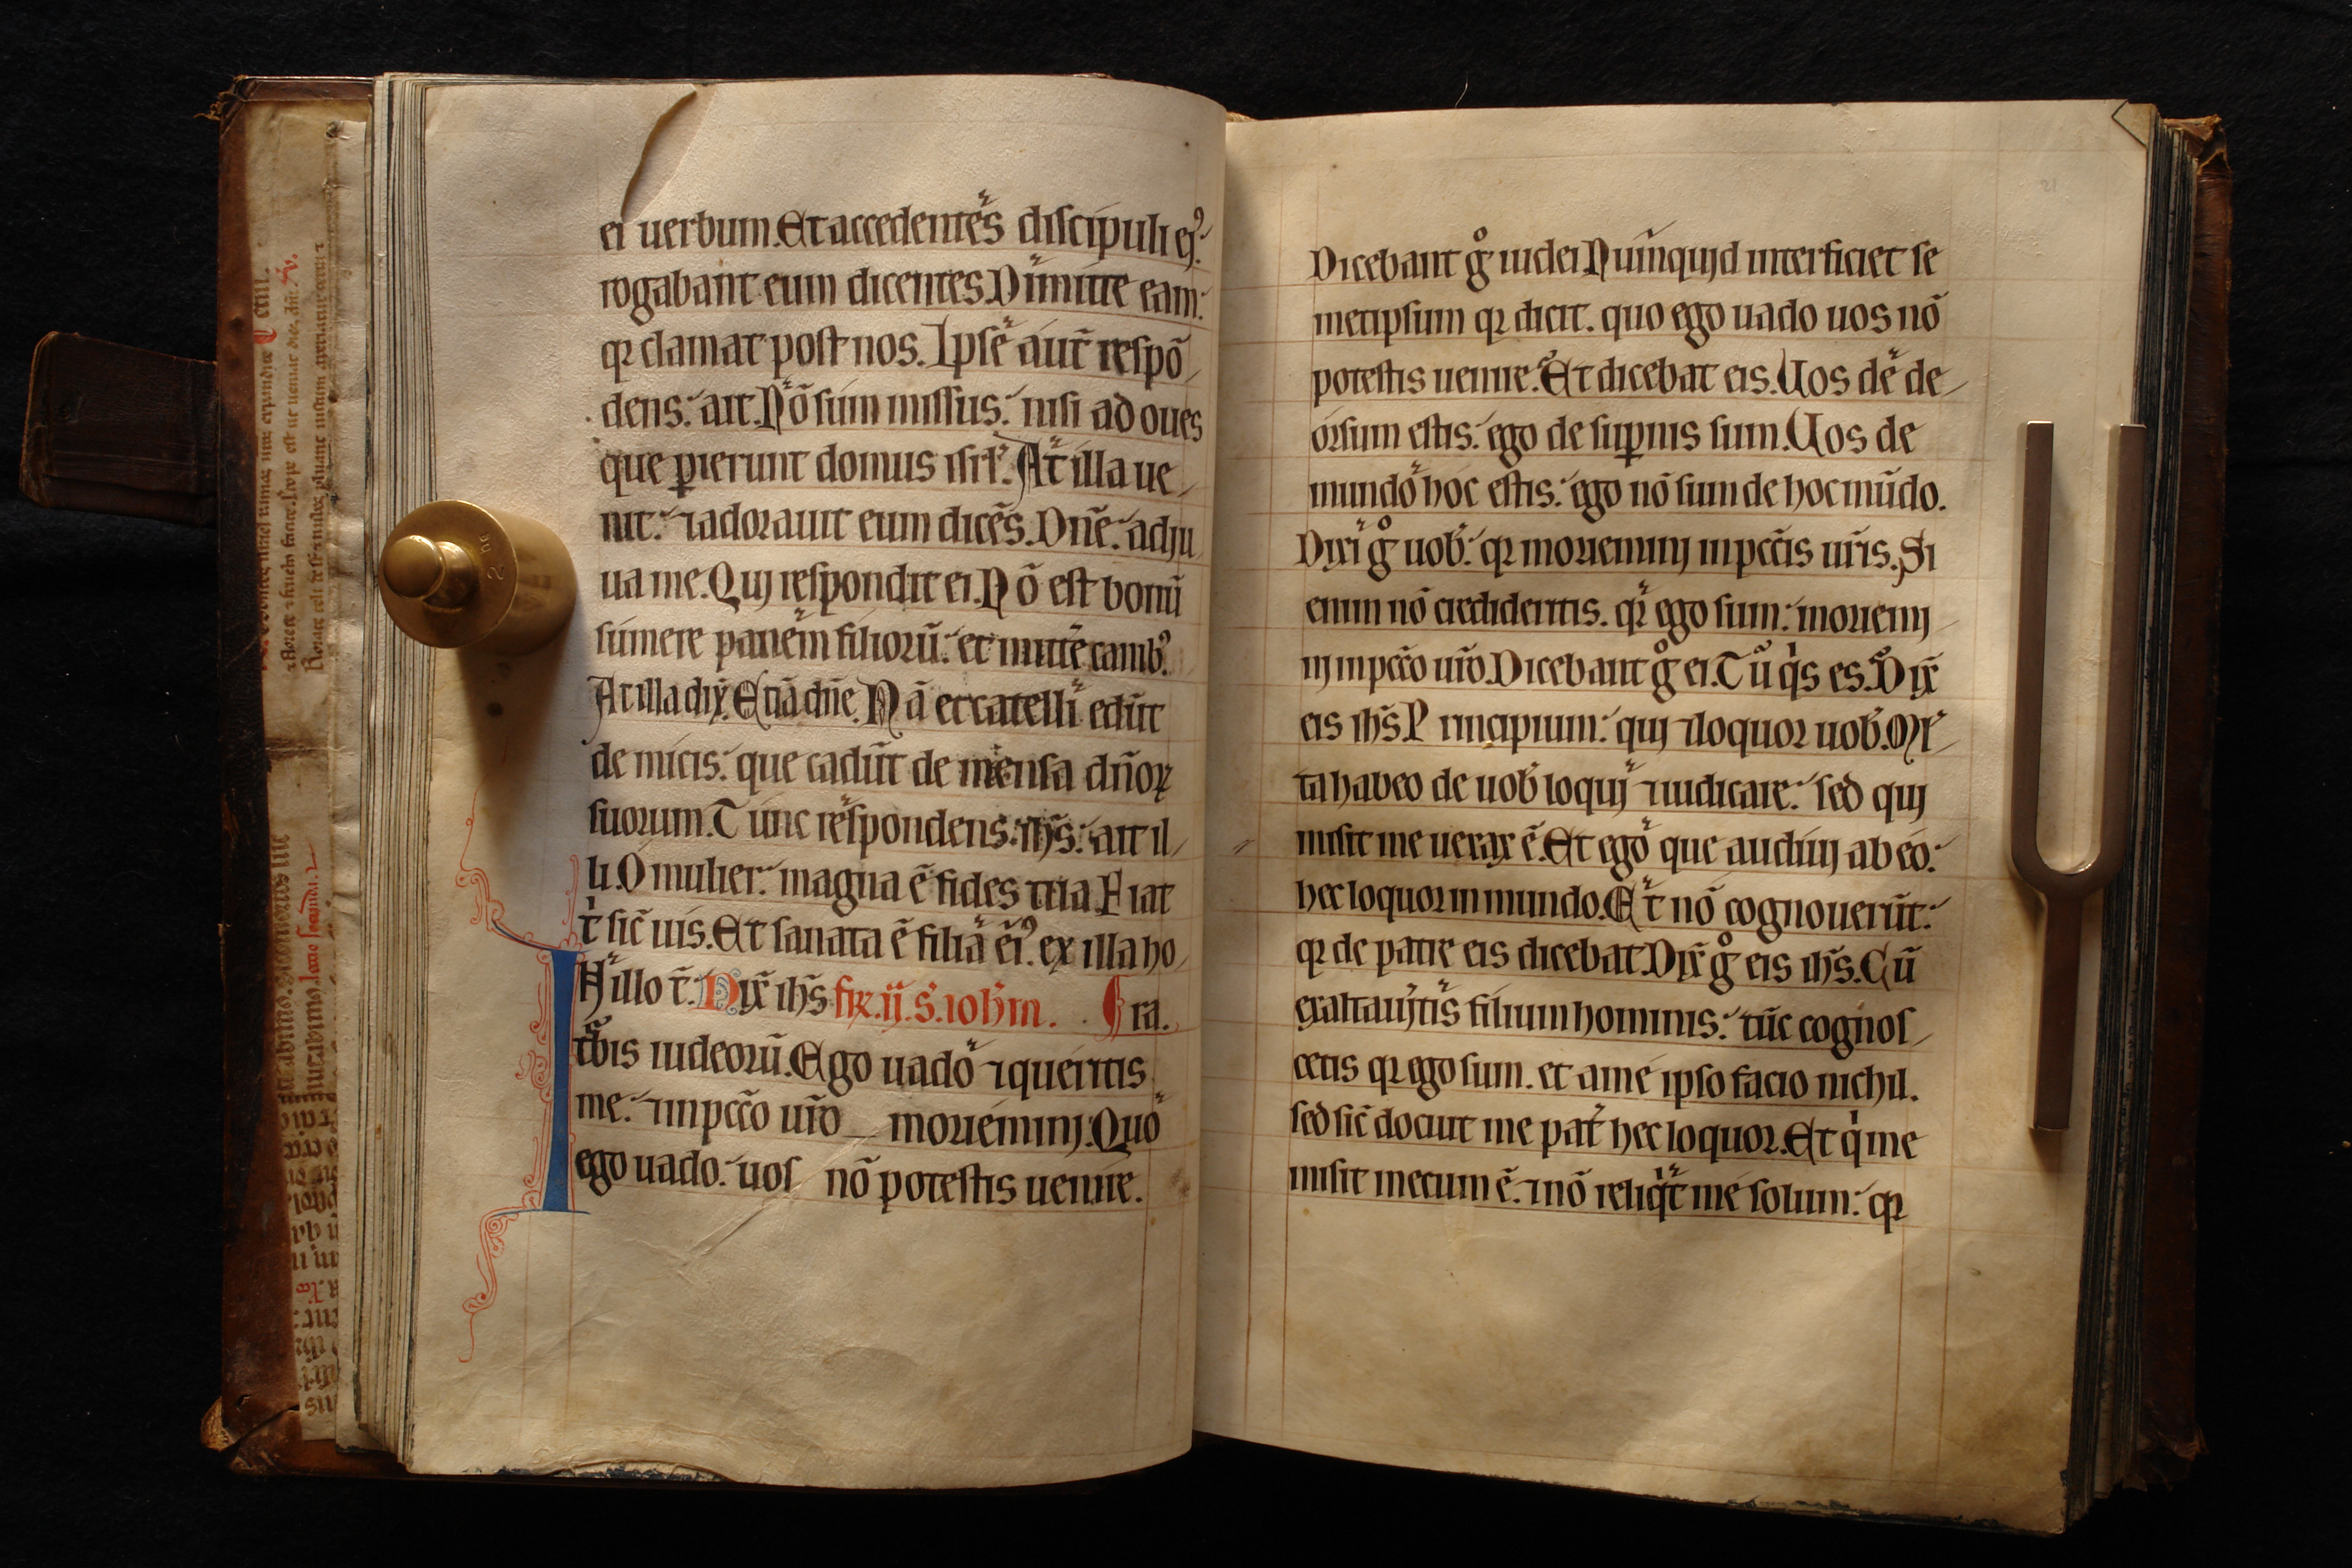 ei uerbum. Et accedentes discipuli eiꝰ
rogabant eum dicentes. Dimitte eam:
qꝛ clamat post nos. Ipse aut̄ respō
dens: ait. Nō sum missus: nisi ad oues
que ꝑierunt domus isrl̓. At illa ue
nit: ⁊ adorauit eum dicēs. Dn̄e: adju
ua me. Quj respondit ei. Nō est bonū
sumere panem filiorū: et mittē canibꝫ
At illa dix̄. Etiā dn̄e. Nā et catelli edūt
de micis: que cadūt de mensa dn̄oꝝ
suorum. Tunc respondens: ih̄s: ait il
li. O mulier: magna ē fides tua Fiat
t̓ sic̄ uis. Et sanata ē filia eiꝰ. ex illa ho
H̓ illo t̄. Dix̄ ih̄s fr̄.ij.S.ioh̄m. ¶ ra.
t̓bis iudeorū. Ego uado ⁊ queritis
me: ⁊ in pcc̄o ur̄o moriemini: Quo
ego uado: uos nō potestis uenire.
Dicebant gͦ iudei Nunquid interficiet se
metipsum qꝛ dicit. quo ego uado uos nō
potestis uenire. Et dicebat eis. Uos de de
orsum estis: ego de suꝑnis sum. Uos de
mundo hoc estis: ego nō sum de hoc mūdo.
Dixi gͦ uob̓: qꝛ moriemini in pcc̄is ur̄is. Si
enim nō credideritis. qꝛ ego sum: moriemi
ni in pcc̄o ur̄o. Dicebant gͦ ei. Tu qͥs es. Dix̄
eis ih̄s. Principium: quj ⁊ loquor uob̓. Ml̓
ta habeo de uob̓ loquj ⁊ iudicare: sed quj
misit me uerax ē. Et ego que audiuj ab eo:
hec loquor in mundo. Et nō cognouerūt:
qꝛ de patre eis dicebat. Dix̄ gͦ eis ih̄s. Cū
exaltauitis filium hominis: tūc cognos
cetis qꝛ ego sum. et a me ipso facio nichil.
sed sic̄ docuit me pat̓ hec loquor. Et qͥ me
misit mecum ē. ⁊ nō reliqͥt me solum: qꝛ